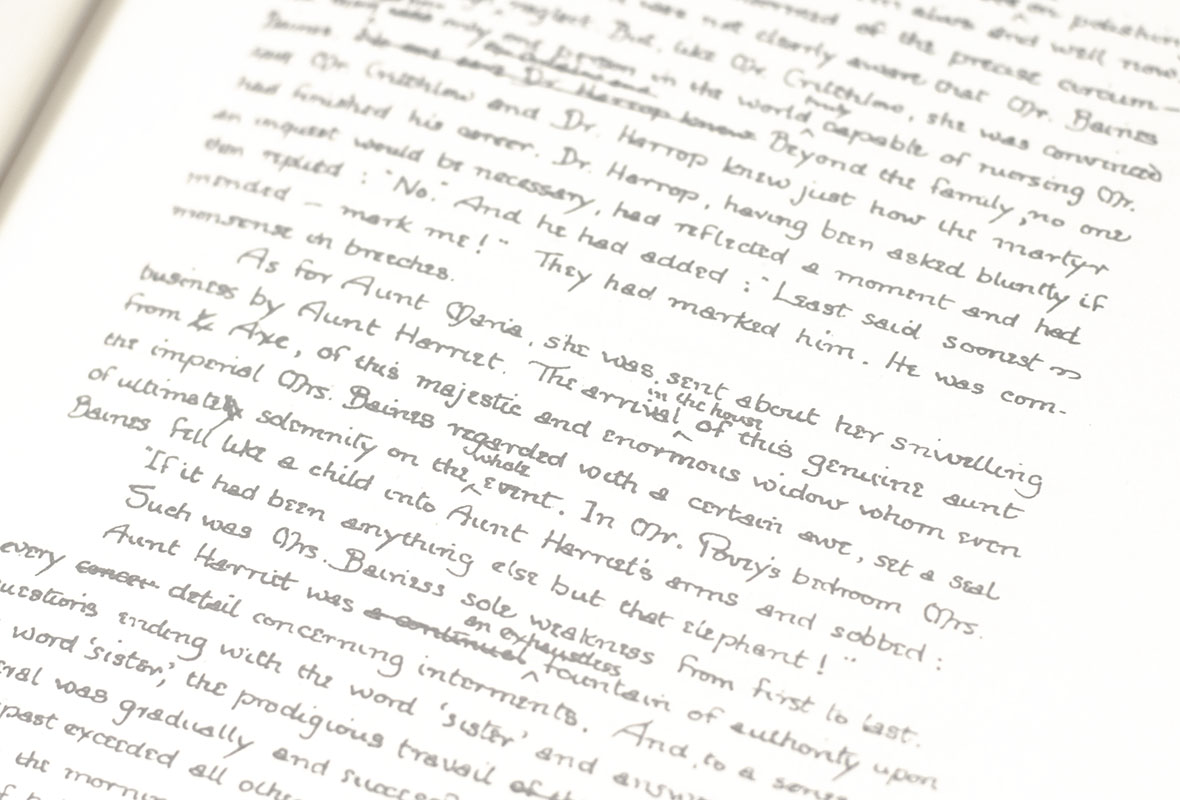 alive and well now
of the precise circum-
were not clearly aware that Mr. Baines
neglect. But, like Mr. Critchlow, she was convinced
any person in the world truly capable of nursing Mr.
Baines. Dr. Harrop knows Beyond the family, no one
and Mr Critchlow and Dr. Harrop knew just how the martyr
had finished his career. Dr. Harrop, having been asked bluntly if
an inquest would be necessary, had reflected a moment and had
then replied : "No." And he had added : "Least said soonest
mended — mark me!" They had marked him. He was com-
monsense in breeches.
As for Aunt Maria, she was sent about her snivelling
business by Aunt Harriet. The arrival in the house of this genuine aunt
from Axe, of this majestic and enormous widow whom even
the imperial Mrs. Baines regarded with a certain awe, set a seal
of ultimate solemnity on the whole event. In Mr. Povey's bedroom Mrs.
Baines fell like a child into Aunt Harriet's arms and sobbed :
"If it had been anything else but that elephant!"
Such was Mrs. Baines's sole weakness from first to last.
Aunt Harriet was a continual an exhaustless fountain of authority upon
every detail concerning interments. And, to a series
ending with the word 'sister' and
word 'sister,' the prodigious travail of the
was gradually and
past exceeded all
the